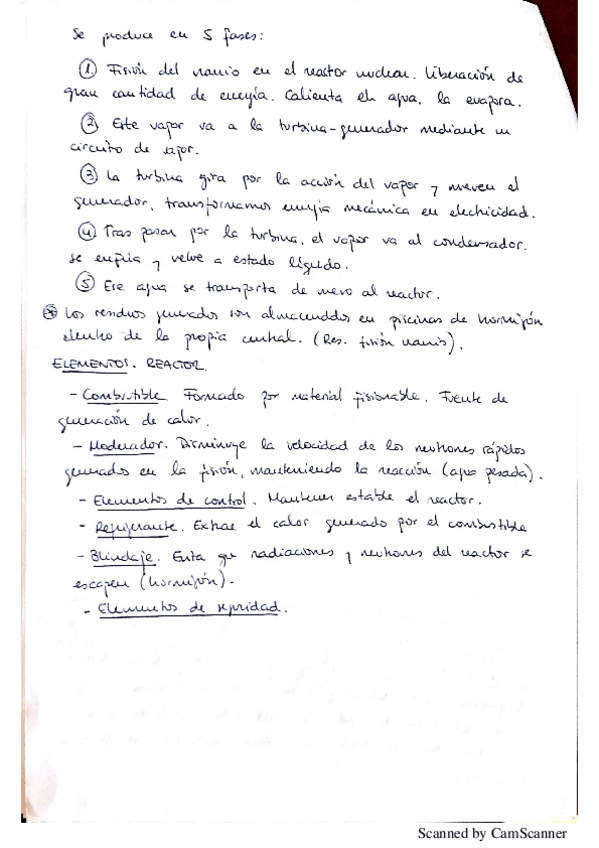 Se produce en 5 fases:
① Fisión del uranio en el reactor nuclear. Liberación de
gran cantidad de energía. Calienta el agua, la evapora.
② Este vapor va a la turbina-generador mediante un
circuito de vapor.
③ La turbina gira por la acción del vapor y mueven el
generador, transformamos energía mecánica en electricidad.
④ Tras pasar por la turbina, el vapor va al condensador.
se enfría y vuelve a estado líquido.
⑤ Ese agua se transporta de nuevo al reactor.
Los residuos generados son almacenados en piscinas de hormigón
dentro de la propia central. (Res. fisión uranio).
ELEMENTOS. REACTOR.
- Combustible. Formado por material fisionable. Fuente de
generación de calor.
- Moderador. Disminuye la velocidad de los neutrones rápidos
generados en la fisión, manteniendo la reacción (agua pesada).
- Elementos de control. Mantienen estable el reactor.
- Refrigerante. Extrae el calor generado por el combustible
- Blindaje. Evita que radiaciones y neutrones del reactor se
escapen (hormigón).
- Elementos de seguridad.
Scanned by CamScanner